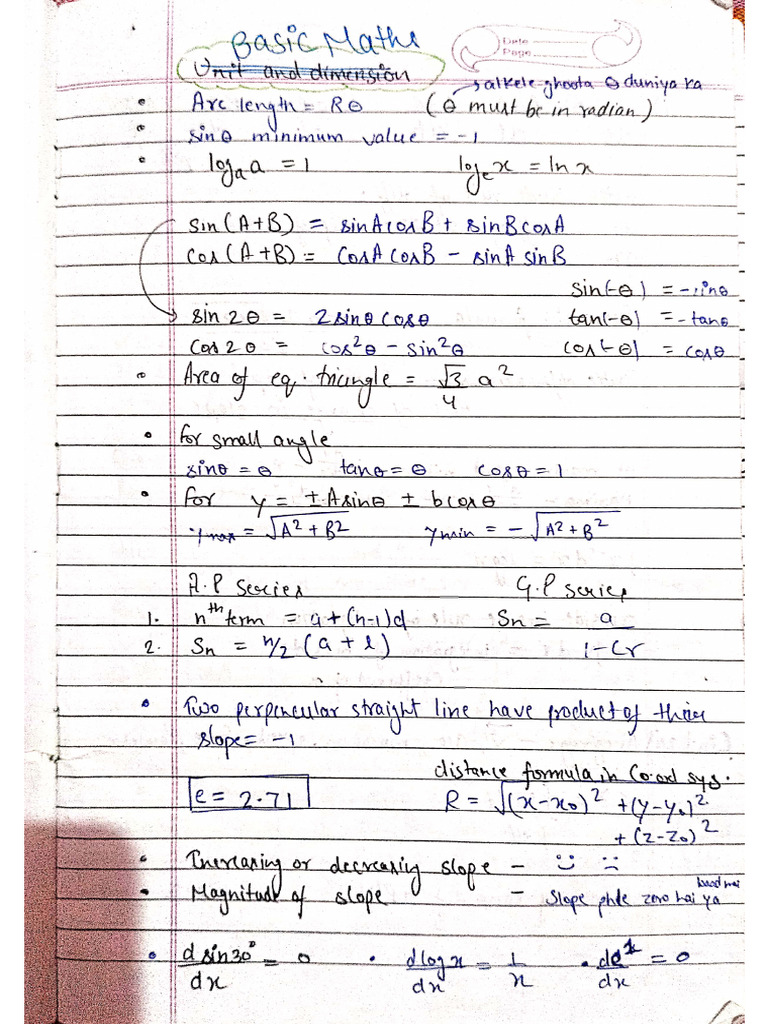 Basic Maths
Date
Page
Unit and dimension
salkele ghoota θ duniya ka
• Arc length = Rθ (θ must be in radian)
• sinθ minimum value = -1
• logₐa = 1 logₑx = ln x
sin(A+B) = sinAcosB + sinBcosA
cos(A+B) = cosAcosB - sinA sinB
sin(-θ) = -sinθ
sin2θ = 2sinθcosθ tan(-θ) = -tanθ
cos2θ = cos²θ - sin²θ cos(-θ) = cosθ
• Area of eq. triangle = √3/4 a²
• for small angle
sinθ = θ tanθ = θ cosθ = 1
• for y = ±Asinθ ± bcosθ
ymax = √A²+B² ymin = -√A²+B²
A.P series G.P series
1. nth term = a+(n-1)d Sn = a/1-Cr
2. Sn = n/2 (a+l)
• Two perpencular straight line have product of thier
slope = -1
distance formula in Co.ord sys.
e = 2.71 R = √(x-x₀)² + (y-y₀)²
+ (z-z₀)²
• Increasing or decreasing slope - ☺ ☹
• Magnitude of slope - Slope phle zero hai ya baad mei
• d sin30°/dx = 0 • dlogx/dx = 1/x • de^x/dx = 0